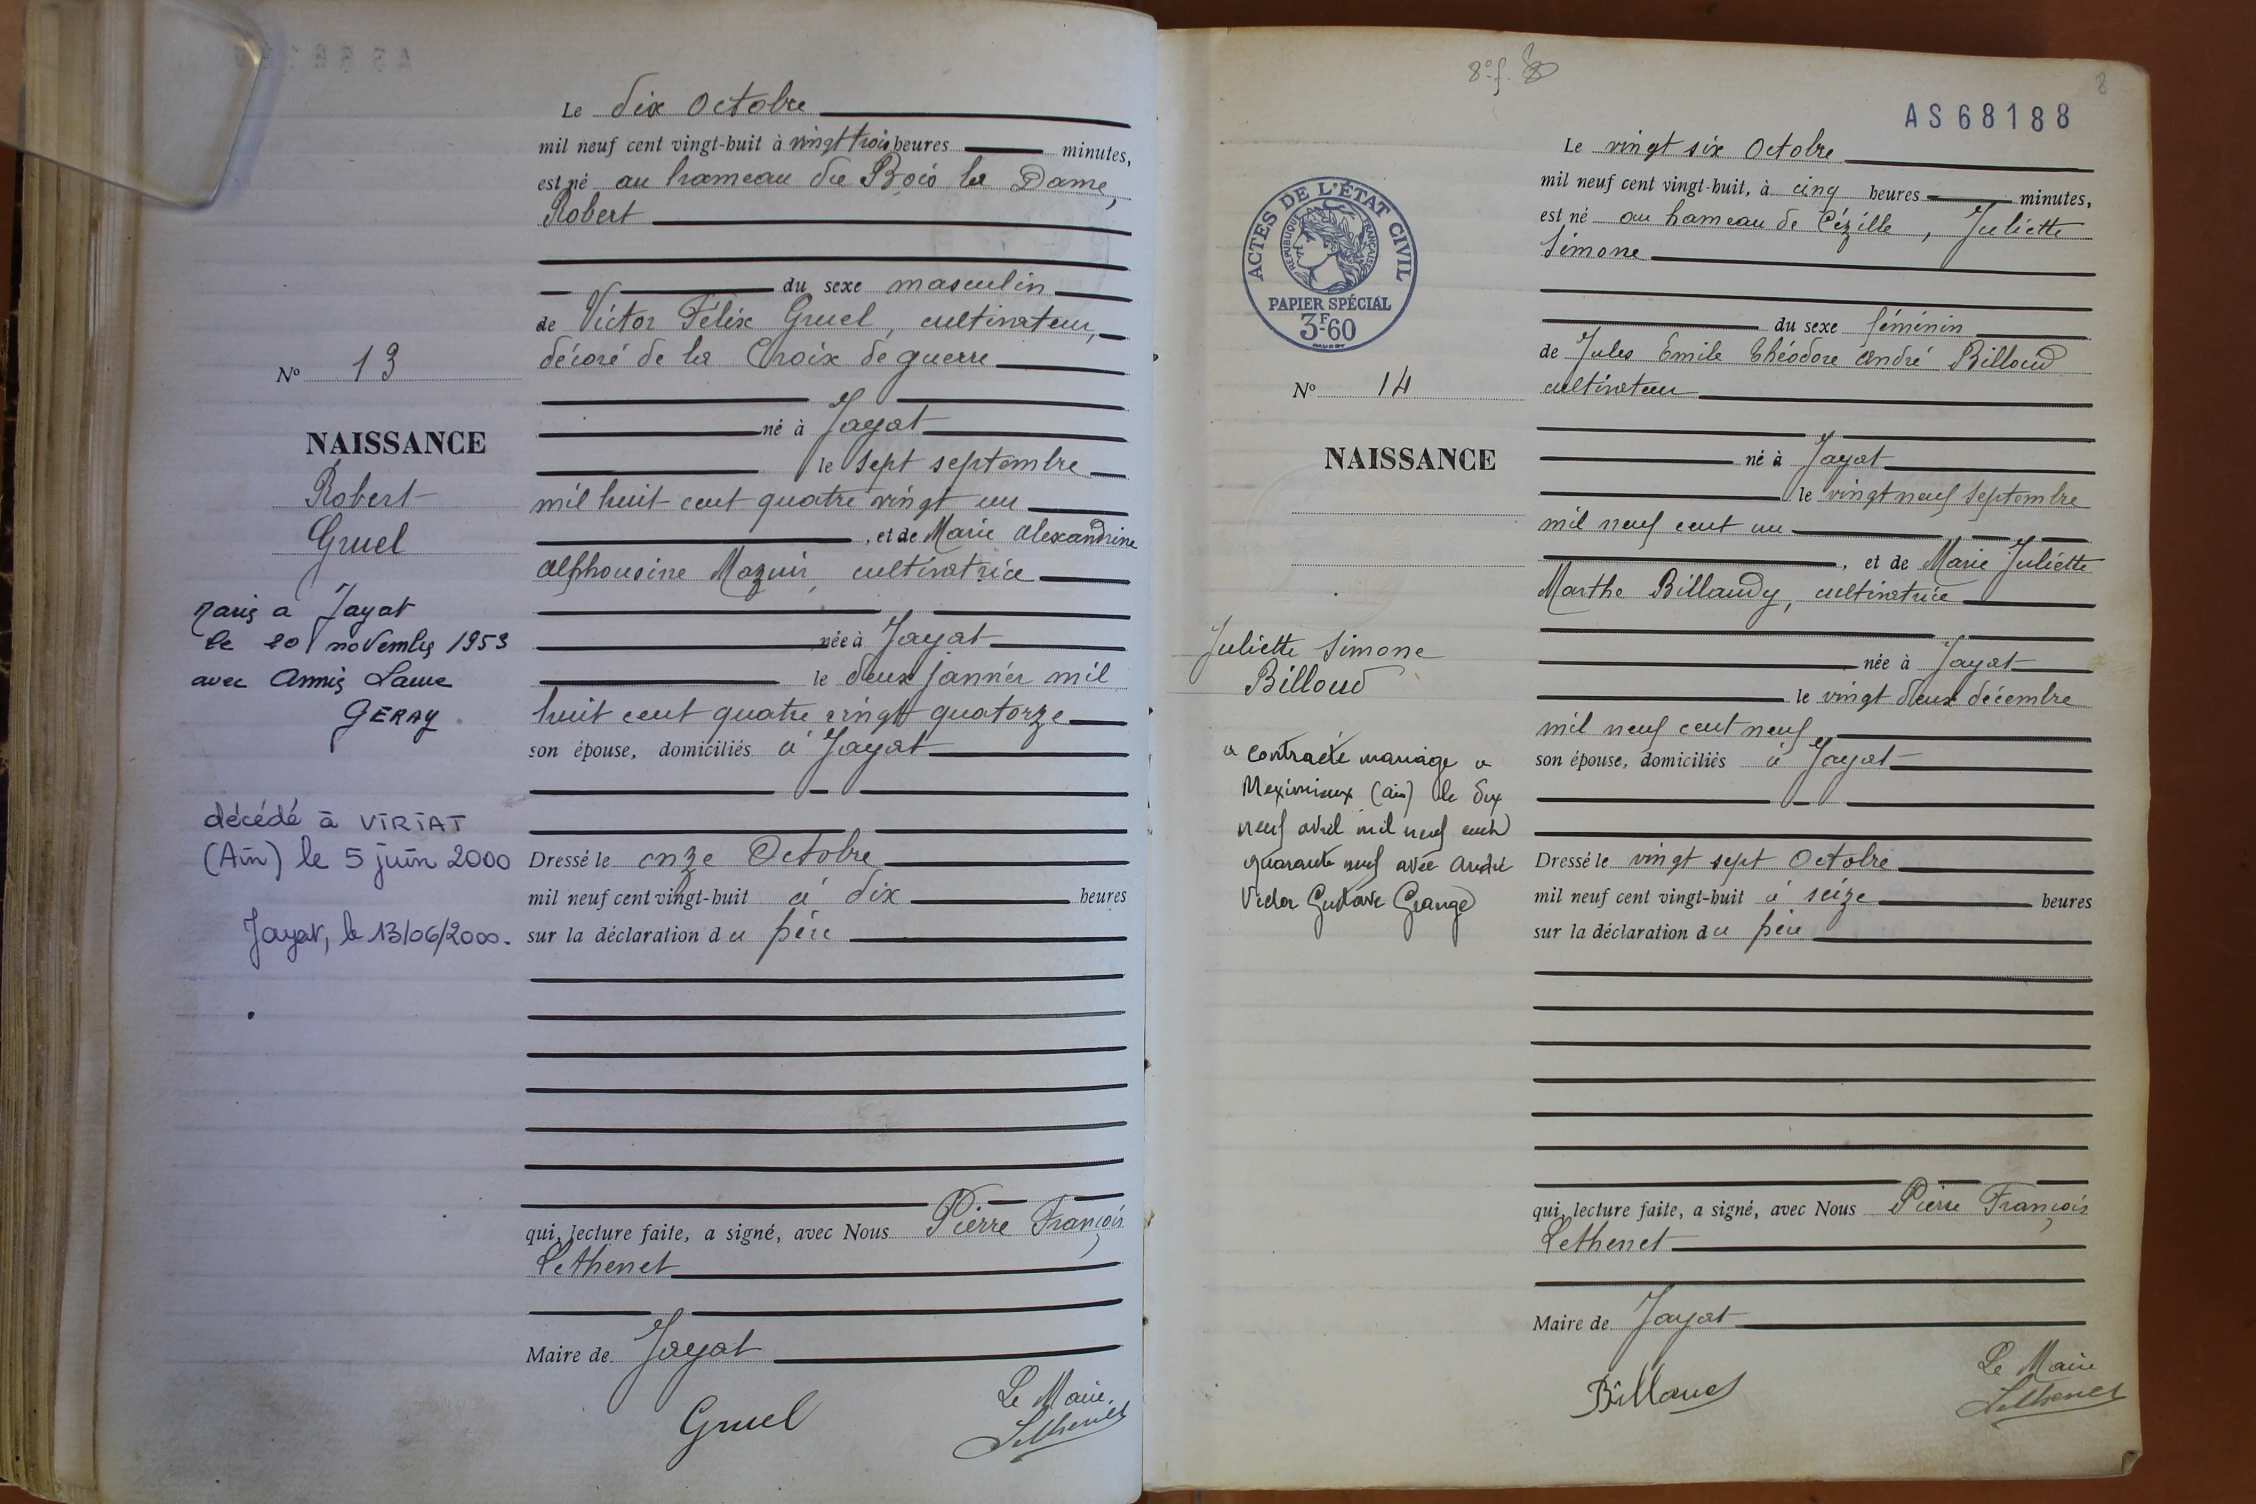 Le dix Octobre
mil neuf cent vingt-huit à vingt trois heures minutes,
est né au hameau du Bois la Dame,
Robert
du sexe masculin
de Victor Félix Gruel, cultivateur,
décoré de la Croix de guerre
né à Jayat
le sept septembre
mil huit cent quatre vingt un
, et de Marie Alexandrine
Alphonsine Mazuir, cultivatrice
née à Jayat
le deux janvier mil
huit cent quatre vingt quatorze
son épouse, domiciliés à Jayat
Dressé le onze Octobre
mil neuf cent vingt-huit à dix heures
sur la déclaration du père
qui, lecture faite, a signé, avec Nous Pierre François
Lethenet
Maire de Jayat
Gruel
Le Maire,
Lethenet
No 13
NAISSANCE
Robert
Gruel
Marié a Jayat
le 20 novembre 1953
avec Annie Laure
GERAY
décédé à VIRIAT
(Ain) le 5 juin 2000
Jayat, le 13/06/2000.
8e f. 8
8
AS68188
ACTES DE L'ÉTAT CIVIL
RÉPUBLIQUE FRANÇAISE
PAPIER SPÉCIAL
3F60
No 14
NAISSANCE
Juliette Simone
Billoud
a contracté mariage a
Meximieux (Ain) le dix
neuf avril mil neuf cent
quarante neuf avec André
Victor Gustave Grange
Le vingt six Octobre
mil neuf cent vingt-huit, à cinq heures minutes,
est né au hameau de Cézille, Juliette
Simone
du sexe féminin
de Jules Emile Théodore André Billoud
cultivateur
né à Jayat
le vingt neuf septembre
mil neuf cent un
, et de Marie Juliette
Marthe Billaudy, cultivatrice
née à Jayat
le vingt deux décembre
mil neuf cent neuf
son épouse, domiciliés à Jayat
Dressé le vingt sept Octobre
mil neuf cent vingt-huit à seize heures
sur la déclaration du père
qui, lecture faite, a signé, avec Nous Pierre François
Lethenet
Maire de Jayat
Billoud
Le Maire
Lethenet